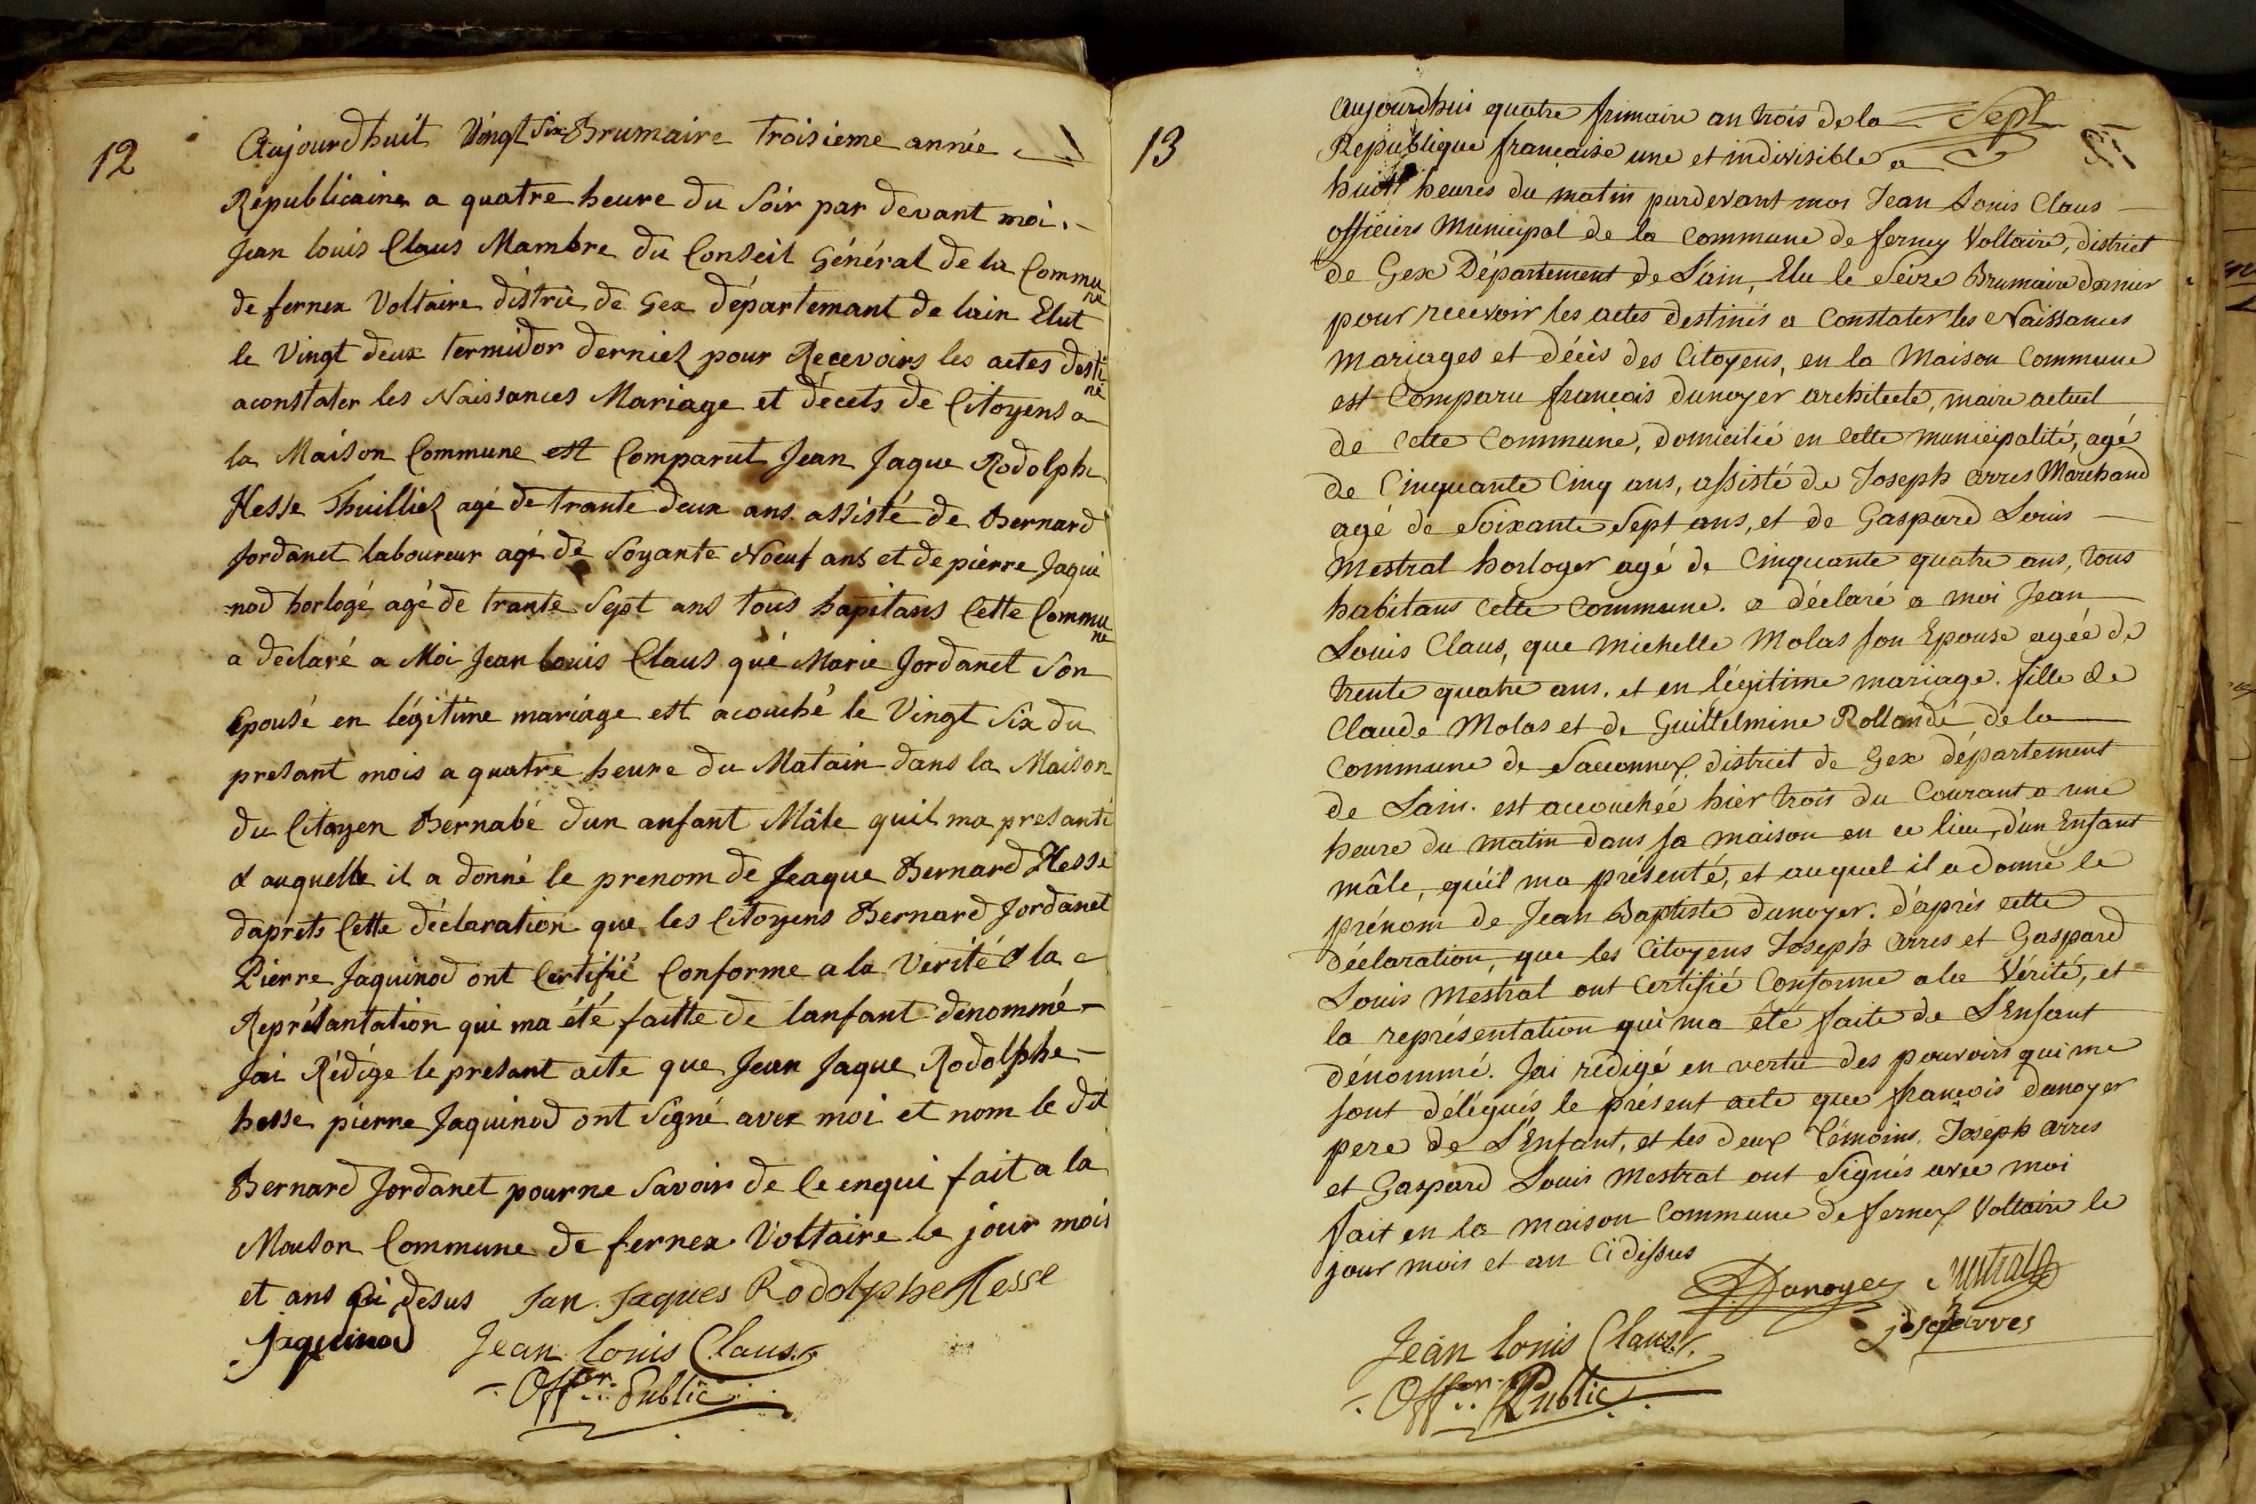 12
Aujourdhuit Vingt Six Brumaire troisieme année
Républicaine a quatre heure du Soir par devant moi
Jean louis Claus Mambre du Conseil Général de la Commune
de fernex Voltaire distric de Gex départemant de lain Elut
le Vingt deux termidor derniez pour Recevoirs les actes destiné
aconstater les Naissances Mariage et décets de Citoyens a
la Maison Commune est Comparut Jean Jaque Rodolphe
Hesse Thuilliez agé de trante deux ans. assisté de Bernard
Jordanet laboureur agé de Soyante Noeuf ans et de pierre Jaqui
nod horlogé agé de trante Sept ans tous hapitans Cette Commune
a déclaré a Moi Jean louis Claus qué Marie Jordanet Son
Epousé en légitime mariage est acouché le Vingt Six du
presant mois a quatre heure du Matain dans la Maison
du Citoyen Bernabé dun anfant Mâle quil ma presanté
& auquelle il a donné le prenom de Jeaque Bernard Hesse
daprêts Cette déclaration que les Citoyens Bernard Jordanet
Pierre Jaquinod ont Certifié Conforme a la Verité & la
Représantation qui ma été faitte de lanfant dénommé
Jai Rédige le presant acte que Jean Jaque Rodolphe
hesse pierre Jaquinod ont Signé avex moi et nom le dit
Bernard Jordanet pour ne Savoir de Ce enqui fait a la
Maison Commune de fernex Voltaire le jour mois
et ans Ci desus Jan Jaques Rodolphe Hesse
Jaquinod Jean Louis Claus
Offer. Public
13
Aujourdhui quatre frimaire an trois de la Sept
République francaise une et indivisible a
huit heures du matin pardevant moi Jean Louis Claus
officiers Municipal de la Commune de ferney Voltaire, district
de Gex Département de L'ain, Elu le Seize Brumaire dernier
pour recevoir les actes destinés a Constater les Naissances
Mariages et décès des Citoyens, en la Maison Commune
est Comparu françois dunoyer architecte, maire actuel
de Cette Commune, domicilié en Cette municipalité, agé
de Cinquante Cinq ans, assisté de Joseph arres Marchand
agé de Soixante Sept ans, et de Gaspard Louis
Mestral horloger agé de Cinquante quatre ans, tous
habitans Cette Commune. a déclaré a moi Jean
Louis Claus, que Michelle Molas son Epouse agée de
trente quatre ans. et en légitime mariage. fille de
Claude Molas et de Guillelmine Rollandé de la
Commune de Sacconnex district de Gex département
de Lain. est accouchée hier trois du Courant a une
heure du matin dans sa maison en ce lieu, d'un Enfant
mâle, qu'il ma présenté, et auquel il a donné le
prénom de Jean Baptiste dunoyer. d'après cette
déclaration, que les Citoyens Joseph arres et Gaspard
Louis Mestral ont Certifié Conforme a la Vérité, et
la représentation qui ma été faite de L'Enfant
dénommé. Jai rédigé en vertu des pouvoirs qui me
sont délégués le présent acte que françois dunoyer
pere de L'Enfant, et les deux témoins Joseph arres
et Gaspard Louis Mestral ont Signés avec moi
fait en la maison Commune de fernex Voltaire le
jour mois et an Ci dessus
Dunoyer Mestral
joseph arres
Jean Louis Claus
Offer. Public